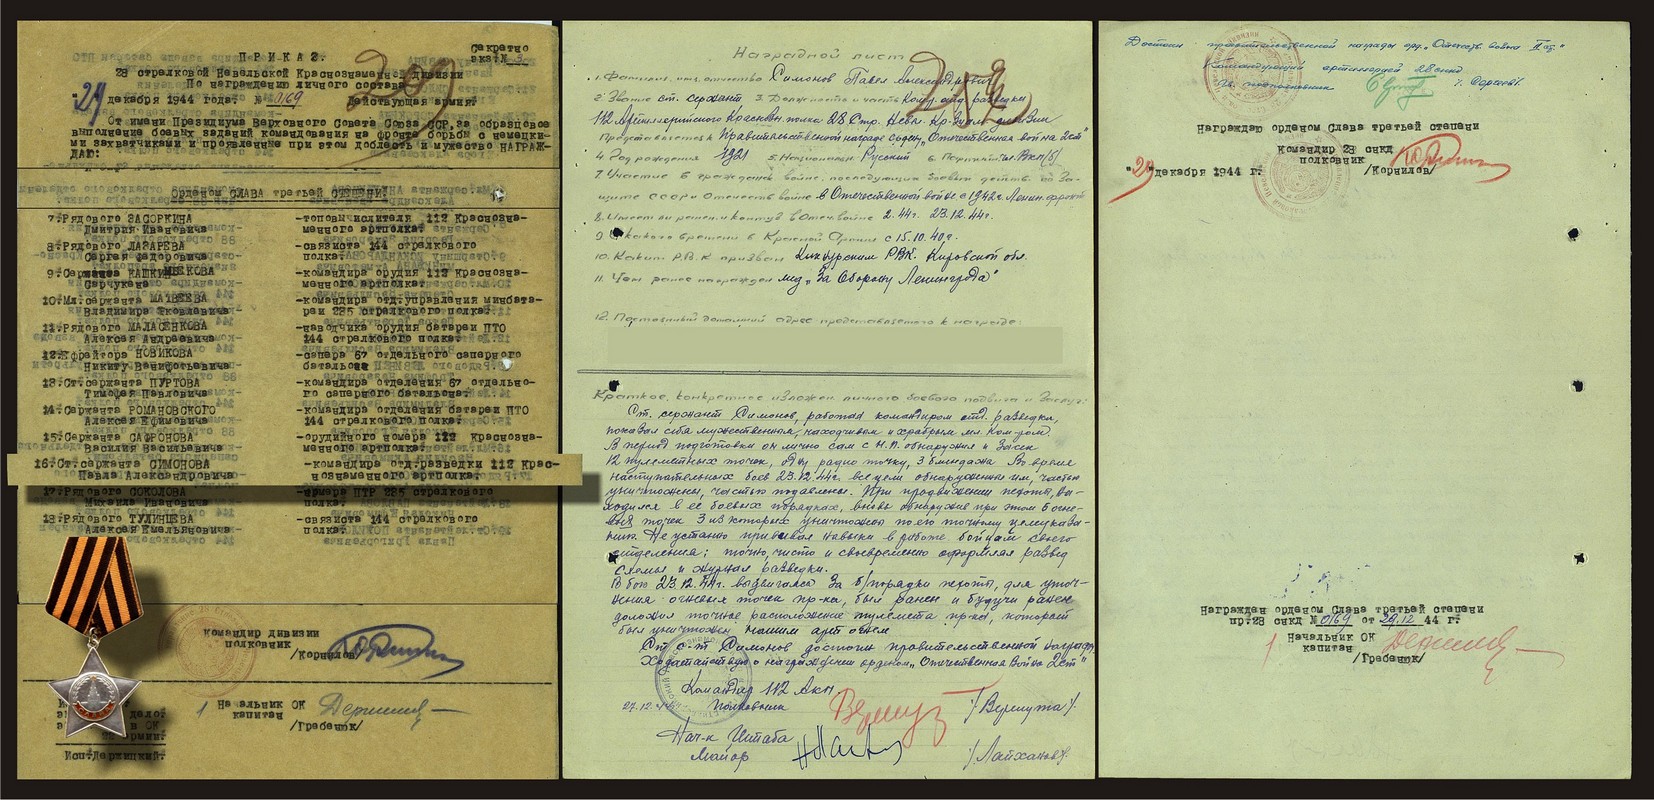 Секретно
экз. № 3
П Р И К А З.
28 стрелковой Невельской Краснознаменной дивизии
По награждению личного состава
"29" декабря 1944 года. № 0169 Действующая армия.
От имени Президиума Верховного Совета Союза ССР, за образцовое
выполнение боевых заданий командования на фронте борьбы с немецки-
ми захватчиками и проявленные при этом доблесть и мужество НАГРАЖ-
ДАЮ:
Орденом СЛАВА третьей СТЕПЕНИ:
7. Рядового ЗАСОРКИНА -топовычислителя 112 Краснозна-
Дмитрия Ивановича менного артполка.
8. Рядового ЛАЗАРЕВА -связиста 144 стрелкового
Сергея Федоровича полка.
9. Сержанта -командира орудия 112 Краснозна-
Сарчукана менного артполка.
10. Мл. сержанта МАТВЕЕВА -командира отд. управления минбата-
Владимира Яковлевича реи 235 стрелкового полка.
11. Рядового МАЛАСЕНКОВА -наводчика орудия батареи ПТО
Алексея Андреевича 144 стрелкового полка.
12. Ефрейтора НОВИКОВА -сапера 67 отдельного саперного
Никиту Венифотьевича батальона
13. Ст. сержанта ПУРТОВА -командира отделения 67 отдельно-
Тимофея Павловича го саперного батальона.
14. Сержанта РОМАНОВСКОГО -командира отделения батареи ПТО
Алексея Ефимовича 144 стрелкового полка.
15. Сержанта САФРОНОВА -орудийного номера 112 Краснозна-
Василия Васильевича менного артполка.
16. Ст. сержанта СИМОНОВА -командира отд. разведки 112 Крас-
Павла Александровича нознаменного артполка.
17. Рядового СОКОЛОВА ПТР 235 стрелкового
Михаила Ивановича полка.
18. Рядового ТУЛИНЦЕВА -связиста 144 стрелкового
Алексея Емельяновича полка.
Командир дивизии
полковник
/Корнилов/
Начальник ОК
капитан
/Гребенюк/
Исп. Держицкий
Наградной лист
1. Фамилия, имя, отчество Симонов Павел Александрович
2. Звание ст. сержант 3. Должность и часть Ком. отд. разведки
112 Артиллерийского Краснозн. полка 28 Стр. Невел. Кр. Знам. дивизии
Представляется к Правительственной награде орден „Отечественная война 2ст"
4. Год рождения 1921 5. Национальн. Русский 6. Партийн. чл. ВКП(б)
7. Участие в гражданской войне, последующих боевых действ. по за-
щите СССР и Отечеств. войне в Отечественной войне с 1942г. Ленин. фронт
8. Имеет ли ранен. и контуз. в Отеч. войне 2.44г. 23.12.44г.
9. С какого времени в Красной Армии с 15.10.40г.
10. Каким Р.В.К. призван РВК. Кировской обл.
11. Чем ранее награжден мед. „За Оборону Ленинграда"
12. Постоянный домашний адрес представляемого к награде:
Краткое, конкретное изложен. личного боевого подвига и заслуг:
Ст. сержант Симонов, работая командиром отд. разведки,
показал себя мужественным, находчивым и храбрым мл. ком-дом.
В период подготовки он лично сам с Н.П. обнаружил и засек
12 пулеметных точек, одну радио точку, 3 блиндажа. Во время
наступательных боев 23.12.44г. все цели обнаруженные им, частью
уничтожены, частью подавлены. При продвижении пехоты, на-
ходился в её боевых порядках, вновь обнаружив при этом 5 огне-
вых точек 3 из которых уничтожены по его точному целеуказа-
нию. Не устанно прививал навыки в работе бойцам своего
отделения; точно, чисто и своевременно оформлял развед
схемы и журнал разведки.
В бою 23.12.44г. выдвигаясь за б/порядки пехоты, для уточ-
нения огневых точек пр-ка, был ранен и будучи ранен
доложил точное расположение пулемета пр-ка, который
был уничтожен нашим арт огнем.
Ст. с-т Симонов достоин правительственной награды
Ходатайствую о награждении орденом „Отечественная Война 2ст"
Командир 112 Акп
27.12. Полковник /Вергута/.
Нач-к Штаба
Майор /Лайханов/.
Достоин правительственной награды орд. „Отечеств. война II ст."
Командующий артиллерией 28 снкд
полковник /Сергеев/.
Награждаю орденом Слава третьей степени
Командир 28 снкд
полковник
/Корнилов/
"29" декабря 1944 г.
Награжден орденом Слава третьей степени
пр. 28 снкд № 0169 от 29.12 44 г.
Начальник ОК
капитан
/Гребенюк/